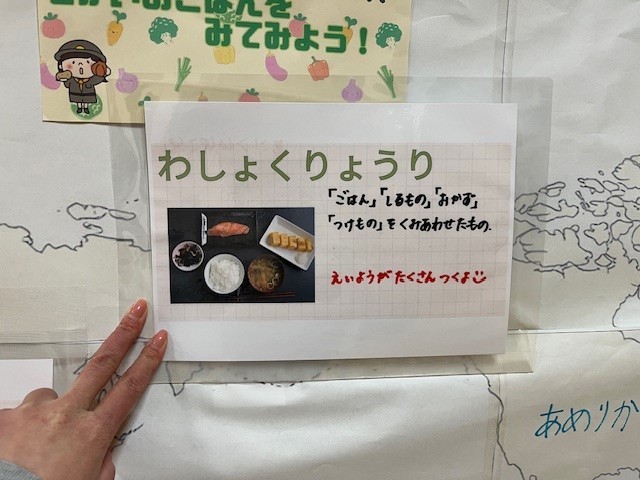 せかいのごはんを
みてみよう！
わしょくりょうり
「ごはん」「しるもの」「おかず」
「つけもの」をくみあわせたもの.
えいようがたくさんつくよ
あめりか